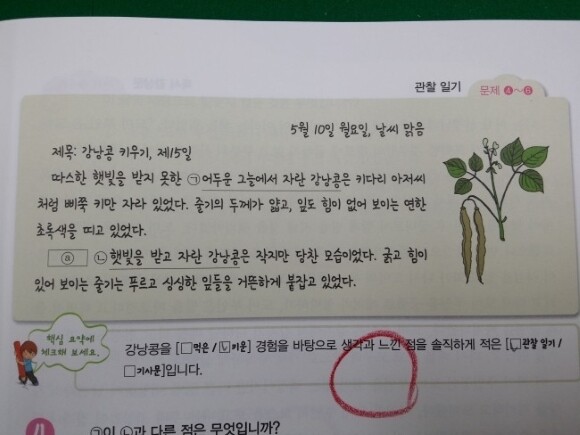 관찰 일기
문제 4~8
5월 10일 월요일, 날씨 맑음
제목: 강낭콩 키우기, 제15일
따스한 햇빛을 받지 못한 ㉠어두운 그늘에서 자란 강낭콩은 키다리 아저씨
처럼 삐쭉 키만 자라 있었다. 줄기의 두께가 얇고, 잎도 힘이 없어 보이는 연한
초록색을 띠고 있었다.
ⓐ ㉡햇빛을 받고 자란 강낭콩은 작지만 당찬 모습이었다. 굵고 힘이
있어 보이는 줄기는 푸르고 싱싱한 잎들을 거뜬하게 붙잡고 있었다.
핵심 요약에
체크해 보세요.
강낭콩을 [□먹은 / □키운] 경험을 바탕으로 생각과 느낀 점을 솔직하게 적은 [□관찰 일기 /
□기사문]입니다.
4
㉠이 ㉡과 다른 점은 무엇입니까?